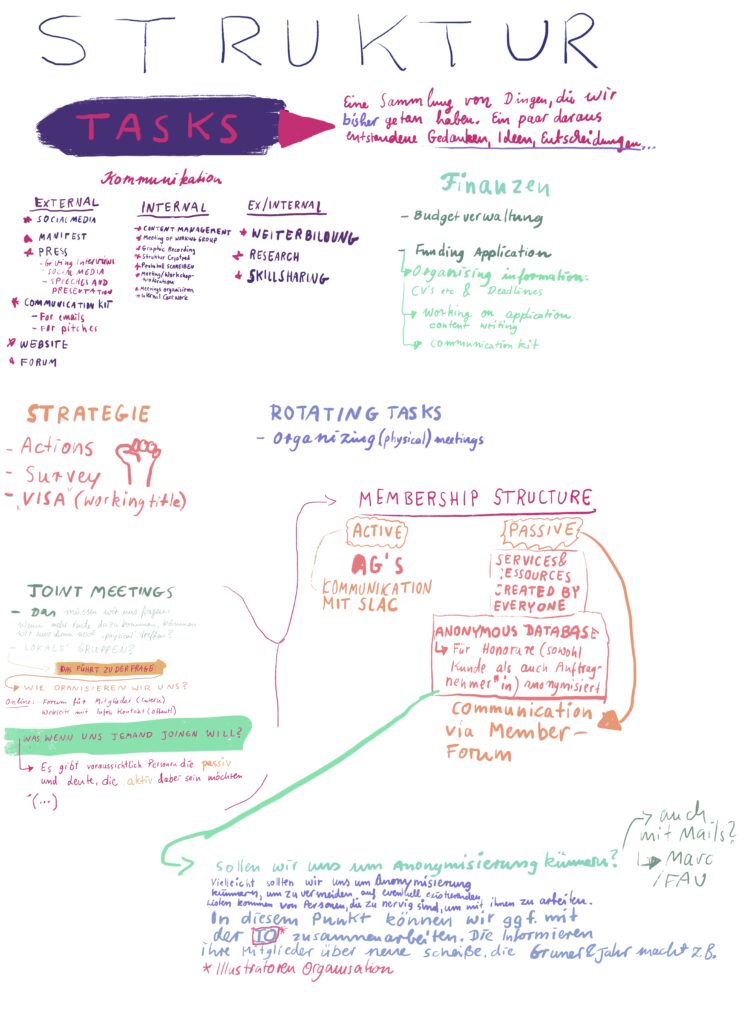 STRUKTUR
TASKS
Eine Sammlung von Dingen, die wir
bisher getan haben. Ein paar daraus
entstandene Gedanken, Ideen, Entscheidungen...
Kommunikation
EXTERNAL
* SOCIAL MEDIA
* MANIFEST
* PRESS
- Giving Interviews
- SOCIAL MEDIA
- SPEECHES AND
PRESENTATION
* COMMUNICATION KIT
- For emails
- For pitches
* WEBSITE
* FORUM
INTERNAL
* CONTENT MANAGEMENT
* Meeting of WORKING GROUP
* Graphic Recording
* Struktur
* Protokoll SCHREIBEN
* Meeting/Workshop-
* Meetings organisieren
* Internal
EX/INTERNAL
* WEITERBILDUNG
* RESEARCH
* SKILLSHARING
Finanzen
- Budgetverwaltung
- Funding Application
Organising information:
CV's etc & Deadlines
Working on application
content writing
Communication kit
STRATEGIE
- Actions
- Survey
- "VISA" (working title)
ROTATING TASKS
- Organizing (physical) meetings
MEMBERSHIP STRUCTURE
ACTIVE
AG'S
KOMMUNIKATION
MIT SLAC
PASSIVE
SERVICES &
RESSOURCES
CREATED BY
EVERYONE
ANONYMOUS DATABASE
Für Honorare (sowohl
Kunde als auch Auftrag-
nehmer*in) anonymisiert
Communication
via Member-
Forum
JOINT MEETINGS
- Das müssen wir uns fragen:
Wenn mehr Leute dazu kommen, können
wir uns dann noch "physical" treffen?
- LOKALE GRUPPEN?
DAS FÜHRT ZU DER FRAGE
WIE ORANISIEREN WIR UNS?
Online: Forum für Mitglieder (intern)
Webseite mit Infos Kontakt (öffentl)
WAS, WENN UNS JEMAND JOINEN WILL?
Es gibt voraussichtlich Personen die passiv
und Leute, die aktiv dabei sein möchten
"(...)
Sollen wir uns um Anonymisierung kümmern?
auch
mit Mails?
Marc
/FAU
Vielleicht sollten wir uns um Anonymisierung
kümmern, um zu vermeiden auf eventuell existierenden
Listen kommen von Personen, die zu nervig sind, um mit ihnen zu arbeiten.
In diesem Punkt können wir ggf. mit
der IO* zusammenarbeiten. Die Informieren
ihre Mitglieder über neue scheiße, die Gruner & Jahr macht z.B.
* Illustratoren Organisation